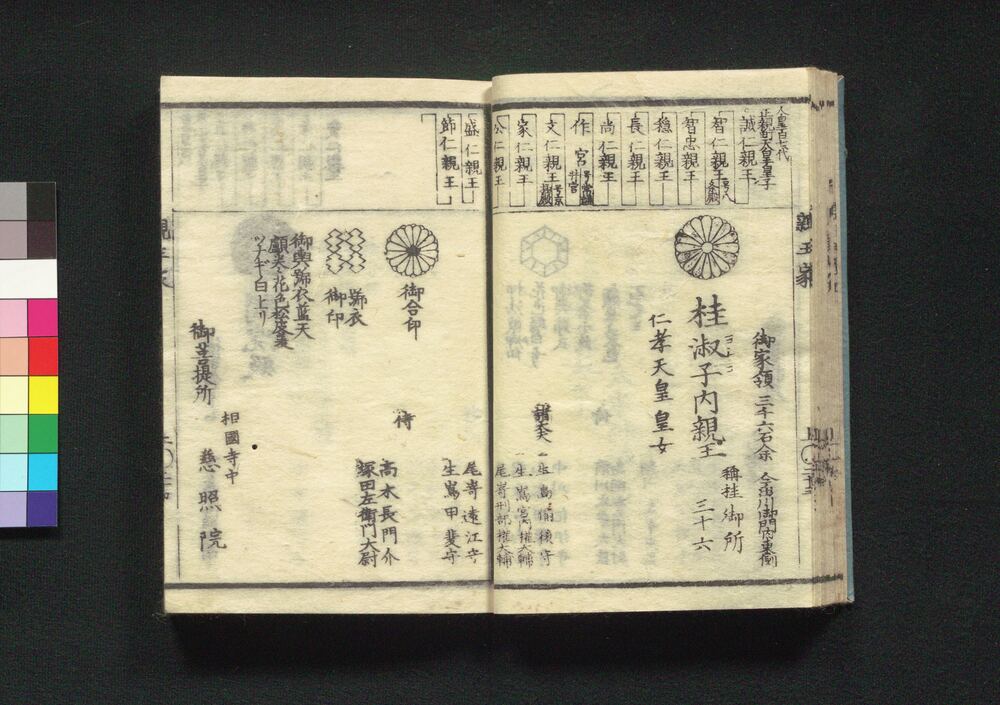 人皇百七代
正親町天皇皇子
誠仁親王
智仁親王
智忠親王
穏仁親王
長仁親王
尚仁親王
作宮
文仁親王
家仁親王
公仁親王
盛仁親王
節仁親王
親王家
御家領 三千六石余
今出川御門内東側
桂淑子内親王
稱桂御所
三十六
仁孝天皇皇女
諸大夫
生嶌備後守
生嶌宮内権大輔
尾嵜刑部権大輔
尾嵜遠江守
生嶌甲斐守
御合印
侍
髙木長門介
塚田左衛門大尉
駕衣
御印
御輿駕衣藍天
ツナギ白上リ
御菩提所
相國寺中
慈照院